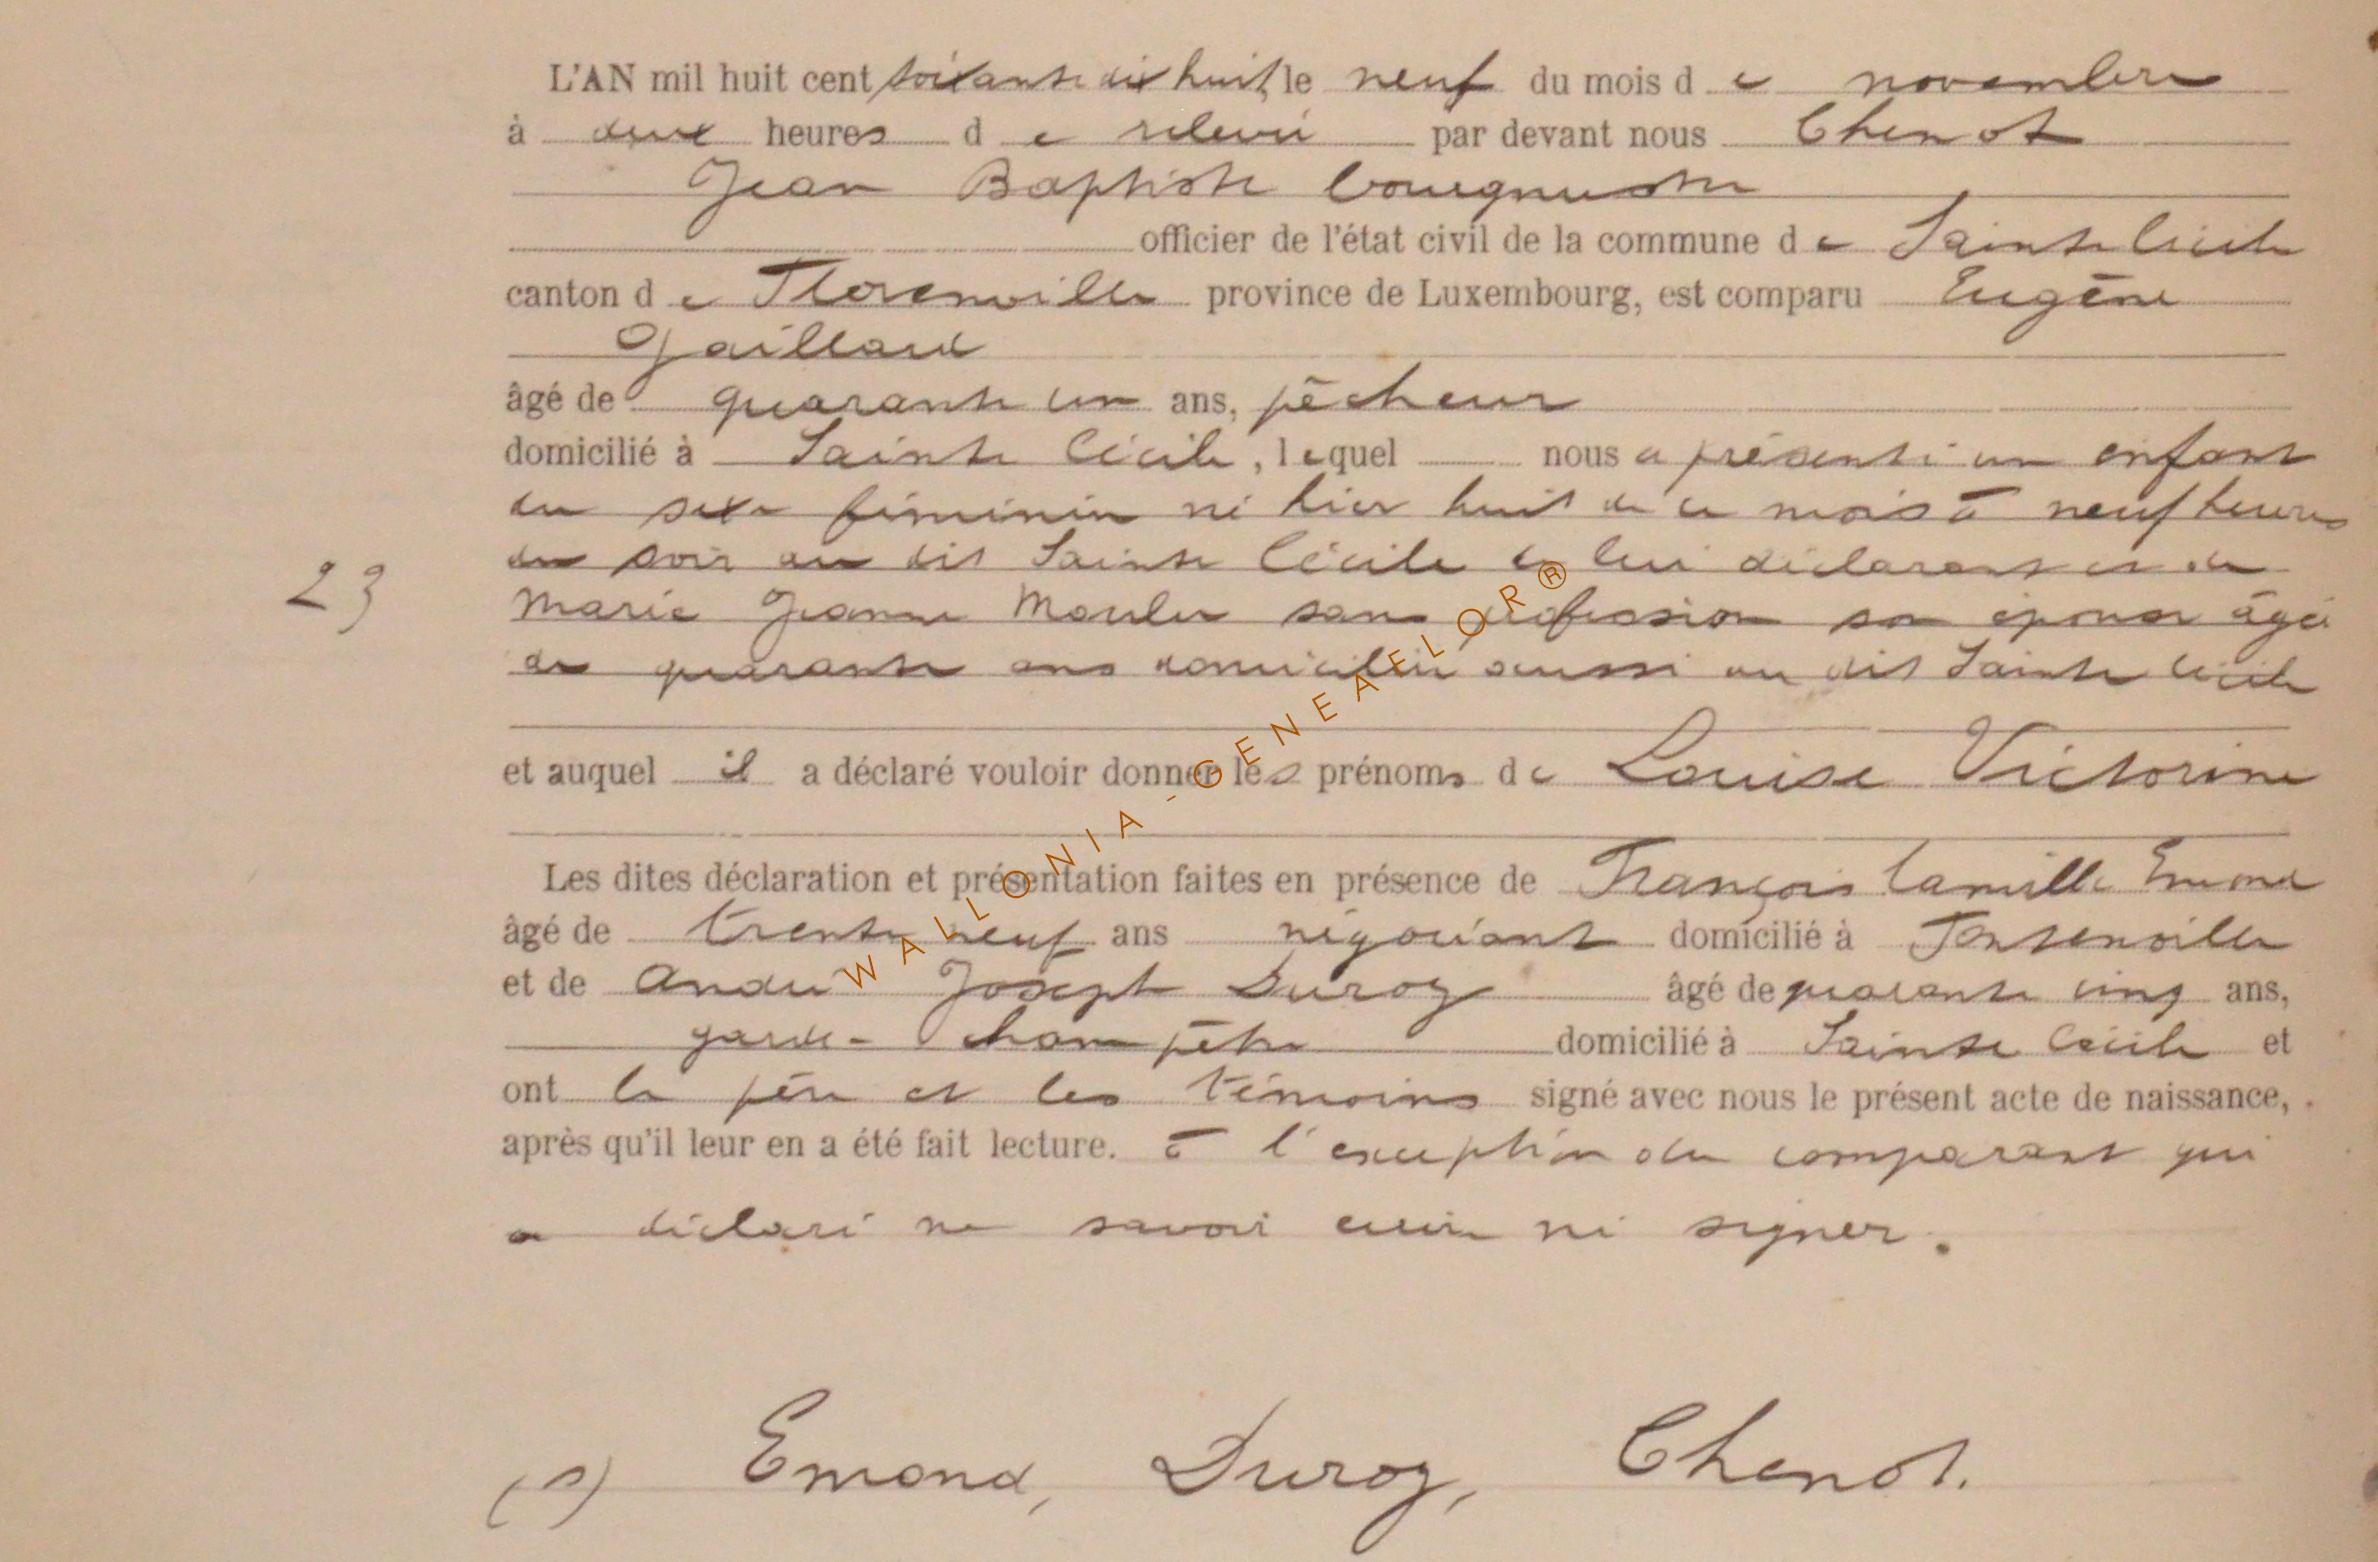 L'AN mil huit cent soixante dix huit, le neuf du mois de novembre
à deux heures de relevée par devant nous Chenot
Jean Baptiste bourgmestre
officier de l'état civil de la commune de Sainte Cécile
canton de Florenville province de Luxembourg, est comparu Eugène
Gaillard
âgé de quarante un ans, pêcheur
domicilié à Sainte Cécile, lequel nous a présenté un enfant
du sexe féminin né hier huit de ce mois à neuf heures
du soir au dit Sainte Cécile de lui déclarant et de
23
Marie Jeanne sans profession son épouse âgée
de quarante ans domiciliée aussi au dit Sainte Cécile
et auquel il a déclaré vouloir donner les prénoms de Louise Victorine
Les dites déclaration et présentation faites en présence de François Camille Emond
âgé de trente neuf ans négociant domicilié à Fontenoille
et de André Joseph Duroy âgé de quarante cinq ans,
garde-champêtre domicilié à Sainte Cécile et
ont le père et les témoins signé avec nous le présent acte de naissance,
après qu'il leur en a été fait lecture. à l'exception du comparant qui
a déclaré ne savoir écrire ni signer.
(s) Emond, Duroy, Chenot.
WALLONIA-GENEAFLOR®